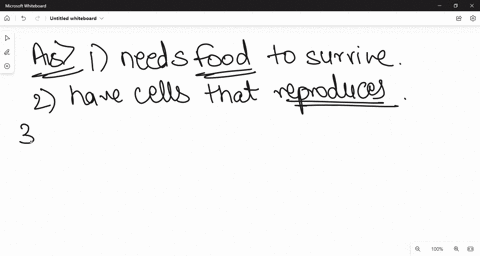 Microsoft Whiteboard
Untitled whiteboard
Ans> 1) needs food to survive.
2) have cells that reproduces.
3
100%